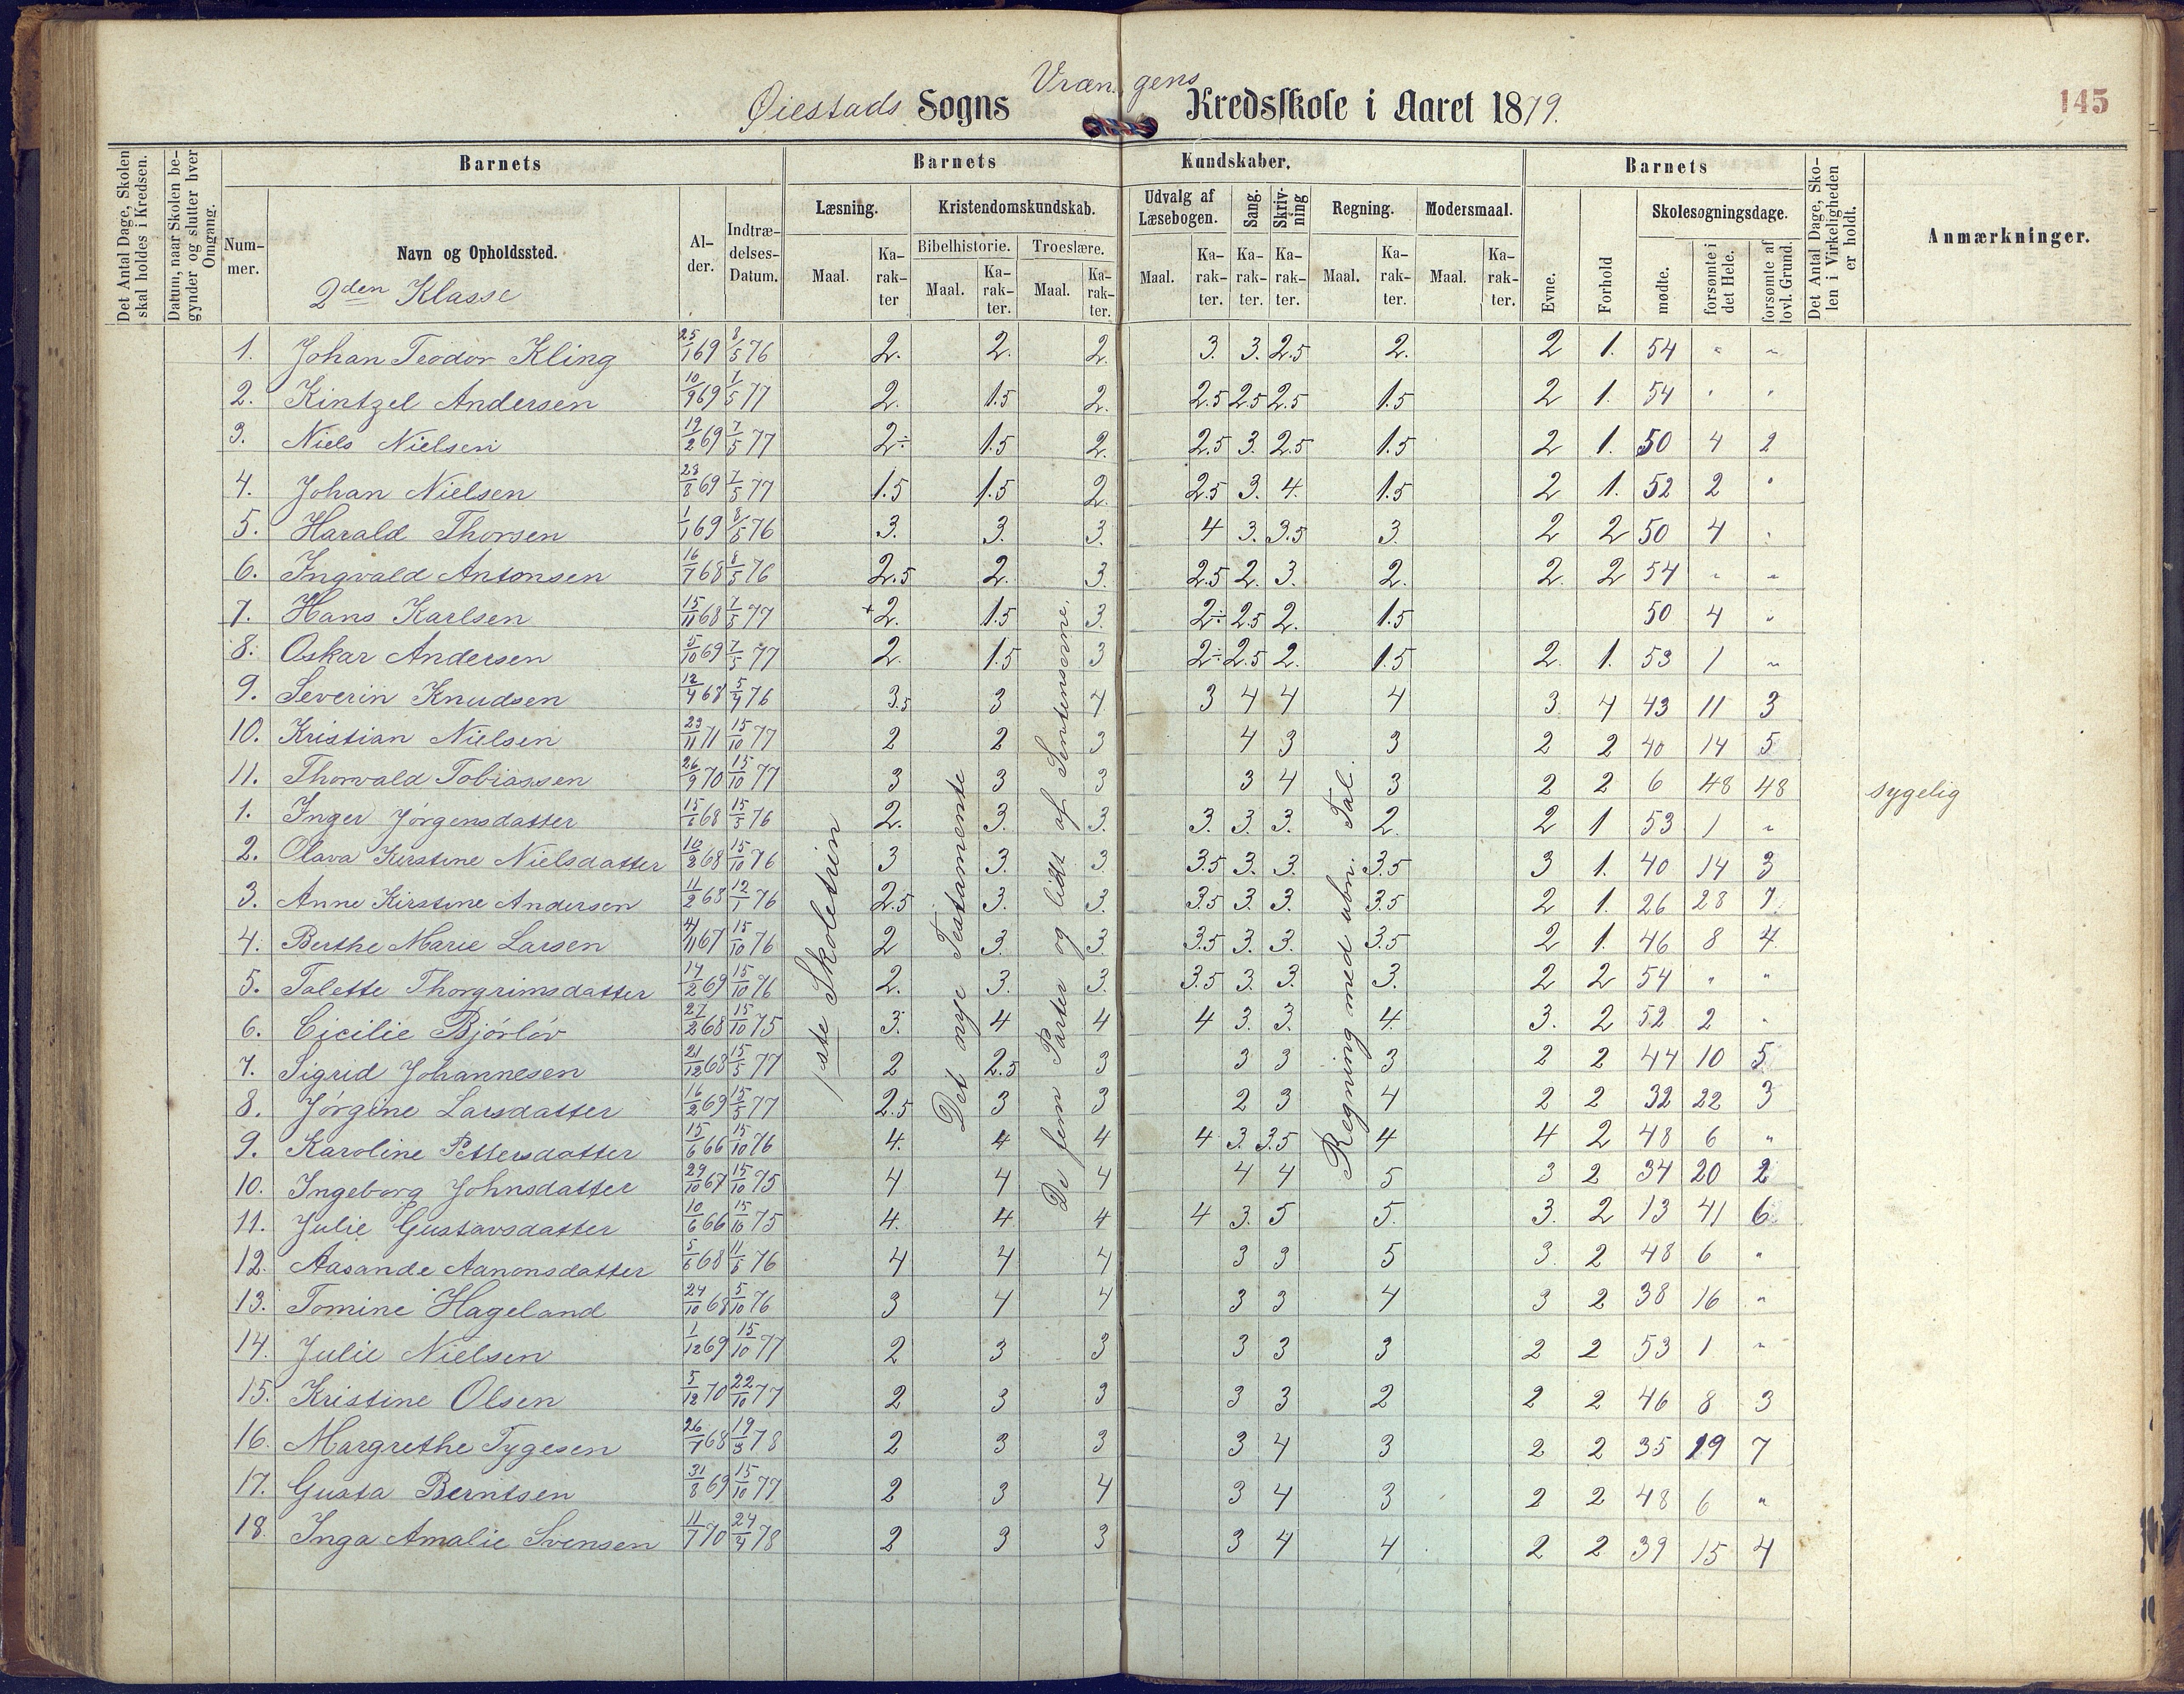 Øiestads Sogns Vrængens Kredsskole i Aaret 1879.
145
Det Antal Dage, Skolen skal holdes i Kredsen.
Datum, naar Skolen begynder og slutter hver Omgang.
Barnets
Nummer.
Navn og Opholdssted.
2den Klasse
Alder.
Indtrædelses-Datum.
Barnets Kundskaber.
Læsning.
Maal.
Karakter
Kristendomskundskab.
Bibelhistorie.
Maal.
Karakter.
Troeslære.
Maal.
Karakter.
Udvalg af Læsebogen.
Maal.
Karakter.
Sang.
Karakter.
Skrivning
Karakter.
Regning.
Maal.
Karakter.
Modersmaal.
Maal.
Karakter.
Barnets
Evne.
Forhold
Skolesøgningsdage.
mødte.
forsømte i det Hele.
forsømte af lovl. Grund.
Det Antal Dage, Skolen i Virkeligheden er holdt.
Anmærkninger.
1. Johan Teodor Kling 25/1 69 8/5 76 2. 2. 2. 3. 3. 2.5 2. 2 1. 54 " "
2. Kintzel Andersen 10/9 69 7/5 77 2. 1.5 2. 2.5 2.5 2.5 1.5 2 1. 54 " "
3. Niels Nielsen 19/2 69 7/5 77 2÷ 1.5 2. 2.5 3. 2.5 1.5 2 1. 50 4 2
4. Johan Nielsen 28/8 69 7/5 77 1.5 1.5 2. 2.5 3. 4. 1.5 2 1. 52 2 "
5. Harald Thorsen 1/1 69 8/5 76 3. 3. 3. 4 3. 3.5 3. 2 2 50 4 "
6. Ingvald Antonsen 16/7 68 8/5 76 2.5 2. 3. 2.5 2. 3. 2. 2. 2 54 " "
7. Hans Karlsen 15/11 68 7/5 77 +2. 1.5 3. 2÷ 2.5 2. 1.5 50 4 "
8. Oskar Andersen 5/10 69 7/5 77 2. 1.5 3 2÷ 2.5 2. 1.5 2. 1. 53 1 "
9. Severin Knudsen 12/4 68 5/4 76 3.5 3 4 3 4 4 4 3. 4 43 11 3
10. Kristian Nielsen 23/11 71 15/10 77 2 2 3 4 3 3 2 2 40 14 5
11. Thorvald Tobiassen 26/9 70 15/10 77 3 3 3 3 4 3 2 2 6 48 48 sygelig
1. Inger Jörgensdatter 15/6 68 15/5 76 2. 3. 3. 3. 3. 3. 2. 2 1 53 1 "
2. Olava Kirstine Nielsdatter 10/2 68 15/10 76 3 3. 3 3.5 3. 3. 3.5 3 1. 40 14 3
3. Anne Kirstine Andersen 11/2 68 12/1 76 2.5 3. 3. 3.5 3. 3. 3.5 2 1. 26 28 7.
4. Berthe Marie Larsen 4/11 67 15/10 76 2 3. 3. 3.5 3. 3. 3.5 2 1. 46 8 4
5. Talette Thorgrimsdatter 14/2 69 15/10 76 2. 3. 3. 3.5 3. 3. 3. 2 2 54 " "
6. Cicilie Bjórlóv 27/2 68 15/10 75 3. 4 4 4 3. 3. 4. 3. 2 52 2 "
7. Sigrid Johannesen 21/12 68 15/5 77 2 2.5 3 3 3 3 2 2 44 10 5
8. Jórgine Larsdatter 16/2 69 15/5 77 2.5 3 3 2 3 4 2 2 32 22 3
9. Karoline Pettersdatter 15/6 66 15/10 76 4. 4 4 4 3. 3.5 4 4 2 48 6 "
10. Ingeborg Johnsdatter 29/10 67 15/10 75 4 4 4 4 4 5 3 2 34 20 2
11. Julie Gustavsdatter 10/6 66 15/10 75 4. 4 4 4 3. 5 5. 3. 2 13 41 6
12. Aasande Aanonsdatter 5/6 68 11/6 76 4 4 4 3 3 5 3. 2 48 6 "
13. Tomine Hageland 24/10 68 5/10 76 3 4 4 3 3 4 3 2 38 16 "
14. Julie Nielsen 1/12 69 15/10 77 2 3 3 3 3 3 2 2 53 1 "
15. Kristine Olsen 5/12 70 22/10 77 2 3 3 3 3 2 2 2 46 8 3
16. Margrethe Tygesen 26/7 68 19/3 78 2 3 3 3 4 3 2 2 35 19 7
17. Gusta Berntsen 31/8 69 15/10 77 2 3 4 3 4 3 2 2 48 6 "
18. Inga Amalie Svensen 11/7 70 24/4 78 2 3 3 3 4 4 2 2 39 15 4
1ste Skoletrien
Det nye Testamente
De fem Parter og lidt af Sentenserne.
Regning med ubn. Tal.